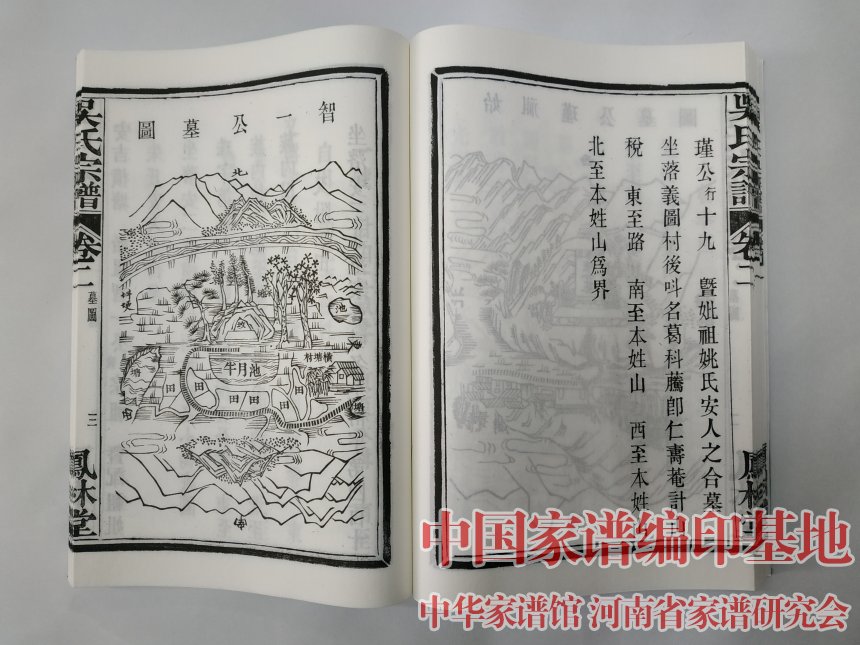 吳氏宗譜 卷二
鳳林堂
瑾公行十九 暨妣祖姚氏安人之合墓
坐落義圖村後呌名葛科卽仁壽菴計
稅 東至路 南至本姓山 西至本姓
北至本姓山爲界
智一公墓圖
北
池
橫塘村
半月池
塘
田
田
田
田
田
田
塘
南
吳氏宗譜 卷二 墓圖 三
鳳林堂
中国家谱编印基地
中华家谱馆 河南省家谱研究会